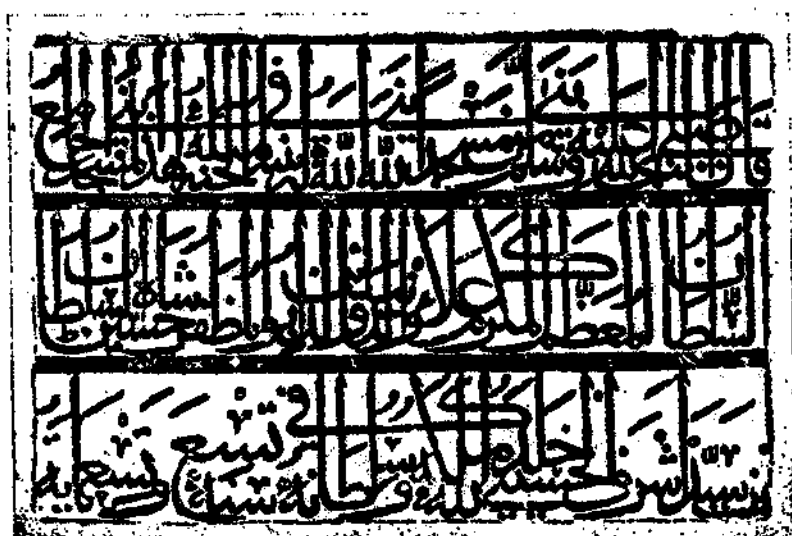 قال النبي صلى الله عليه وسلم من بنى مسجدا لله بنى الله له في الجنة هذا المسجد الجامع
السلطان المعظم المكرم علاء الدنيا والدين ابو المظفر حسين شاه السلطان
بن سيد اشرف الحسيني خلد الله ملكه وسلطانه في سنة تسع وتسعماية